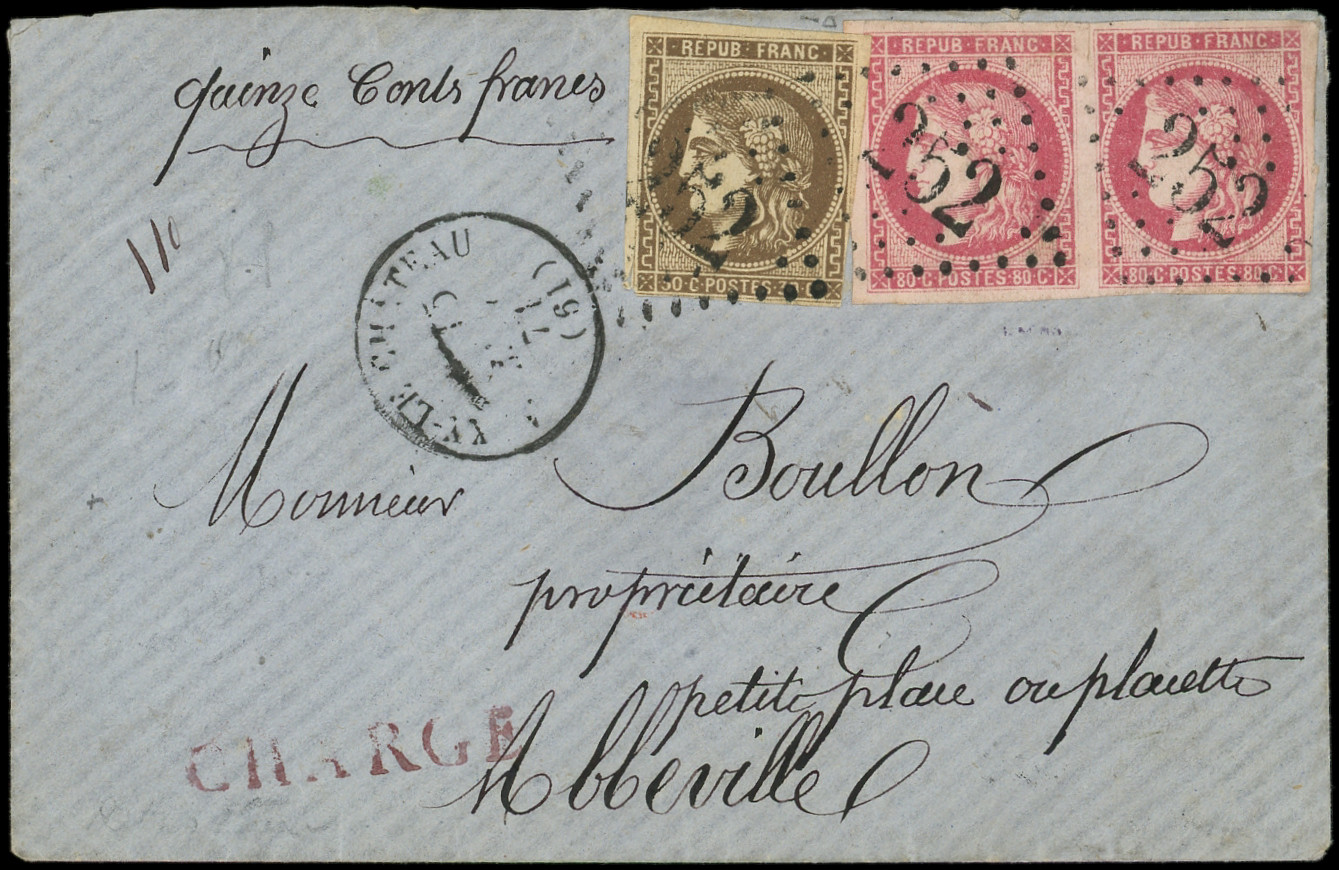 quinze Cents francs
REPUB·FRANC·
30·C·POSTES·30·C
REPUB·FRANC·
80·C·POSTES·80·C·
REPUB·FRANC·
80·C·POSTES·80·C·
1252
1252
1252
110
CHÂTEAU (19)
71
Monsieur Boullon
propriétaire
petite place ou placette
Abbeville
CHARGE